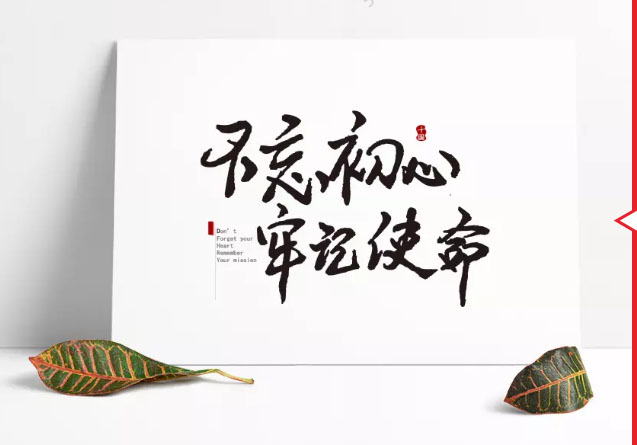 不忘初心
牢记使命
Don't
Forget your
Heart
Remember
Your mission